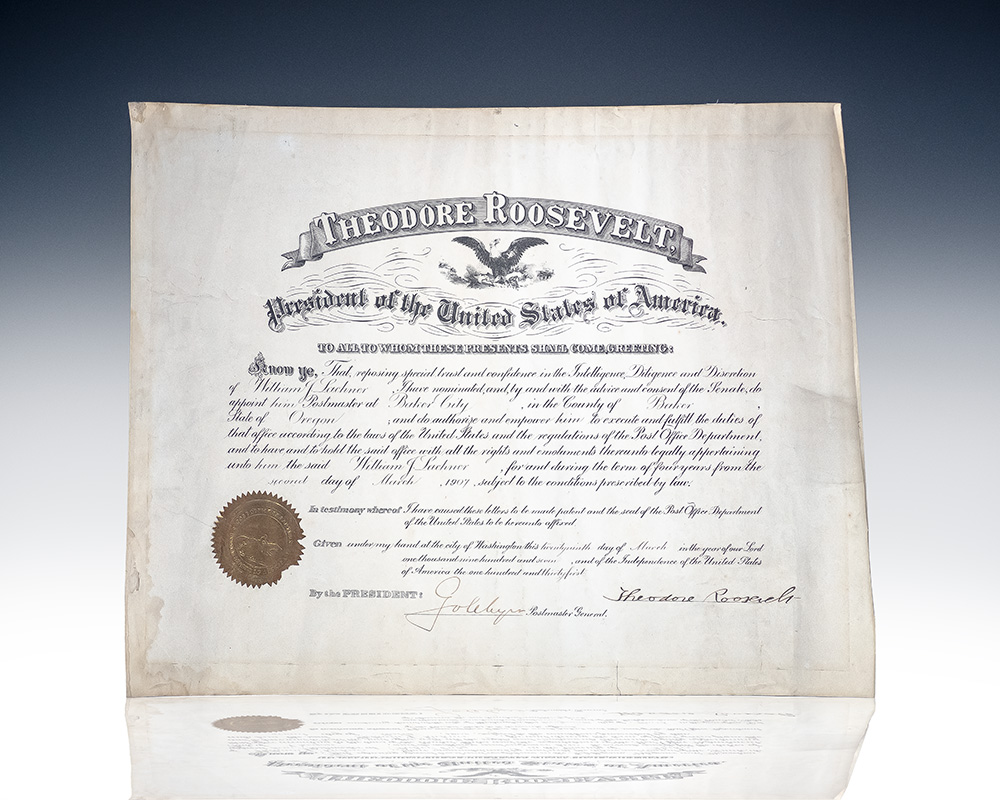 THEODORE ROOSEVELT,
President of the United States of America.
TO ALL TO WHOM THESE PRESENTS SHALL COME, GREETING:
Know ye, That, reposing special trust and confidence in the Intelligence, Diligence and Discretion
of William J. Lachner, I have nominated, and, by and with the advice and consent of the Senate, do
appoint him Postmaster at Baker City, in the County of Baker,
State of Oregon; and do authorize and empower him to execute and fulfill the duties of
that office according to the laws of the United States and the regulations of the Post Office Department,
and to have and to hold the said office with all the rights and emoluments thereunto legally appertaining
unto him the said William J. Lachner, for and during the term of four years from the
second day of March, 1907, subject to the conditions prescribed by law.
In testimony whereof I have caused these letters to be made patent and the seal of the Post Office Department
of the United States to be hereunto affixed.
Given under my hand at the city of Washington this day of March in the year of our Lord
one thousand nine hundred and seven, and of the Independence of the United States
of America the one hundred and thirty first.
By the PRESIDENT: Theodore Roosevelt
Postmaster General.